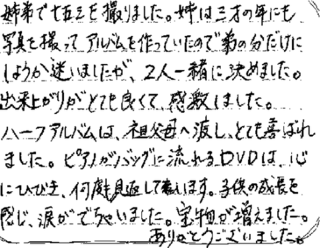 姉弟で七五三を撮りました。姉は三才の年にも
写真を撮って、アルバムを作っていたので弟の分だけに
しようか迷いましたが、2人一緒に決めました。
出来上がりがとても良くて、感激しました。
ハーフアルバムは、祖父母へ渡し、とても喜ばれ
ました。ピアノがバックに流れるDVDは、心
にひびき、何度も見返して します。子供の成長を
感じ、涙がでちゃいました。宝物が増えました。
ありがとうございました。